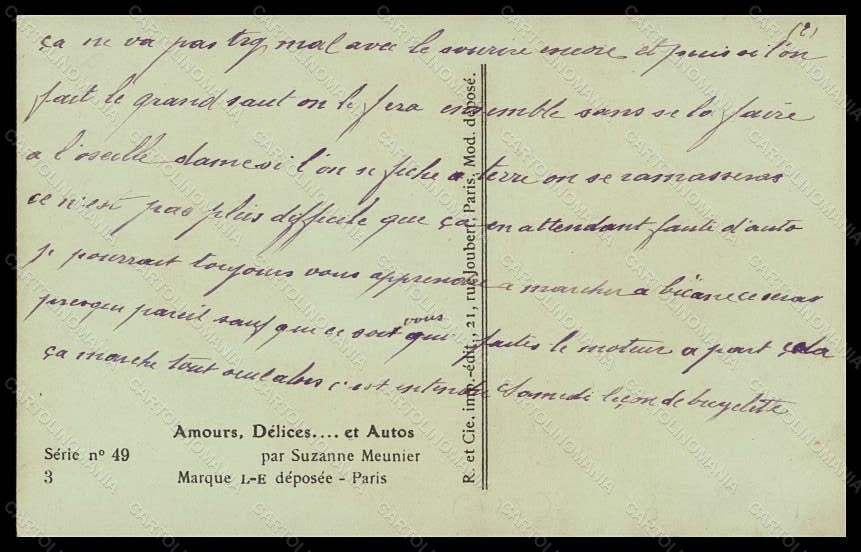 (2)
ça ne va pas trop mal avec le sourire encore et puis si l'on
fait le grand saut on le fera ensemble sans se la faire
a l'oseille dame si l'on se fiche a terre on se ramasseras
ce n'est pas plus difficile que ça en attendant faute d'auto
je pourrait toujours vous apprendre a marcher a bécane ce seras
presque pareil sauf que ce soit vous qui faites le moteur a part cela
ça marche tout seul alors c'est entendu Samedi leçon de bicyclette
Amours, Délices.... et Autos
Série nº 49 par Suzanne Meunier
3 Marque L-E déposée - Paris
R. et Cie, imp.-édit., 21, rue Joubert, Paris, Mod. déposé.
CARTOLINOMANIA